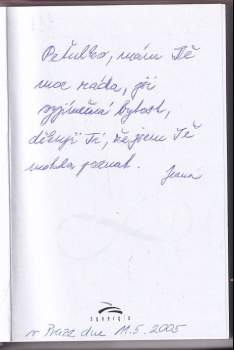 Peťulko, mám Tě
moc ráda, jsi
vyjímečná bytost,
děkuji Ti, že jsem Tě
mohla poznat.
Jana
synergie
v Praze dne 11.5.2005